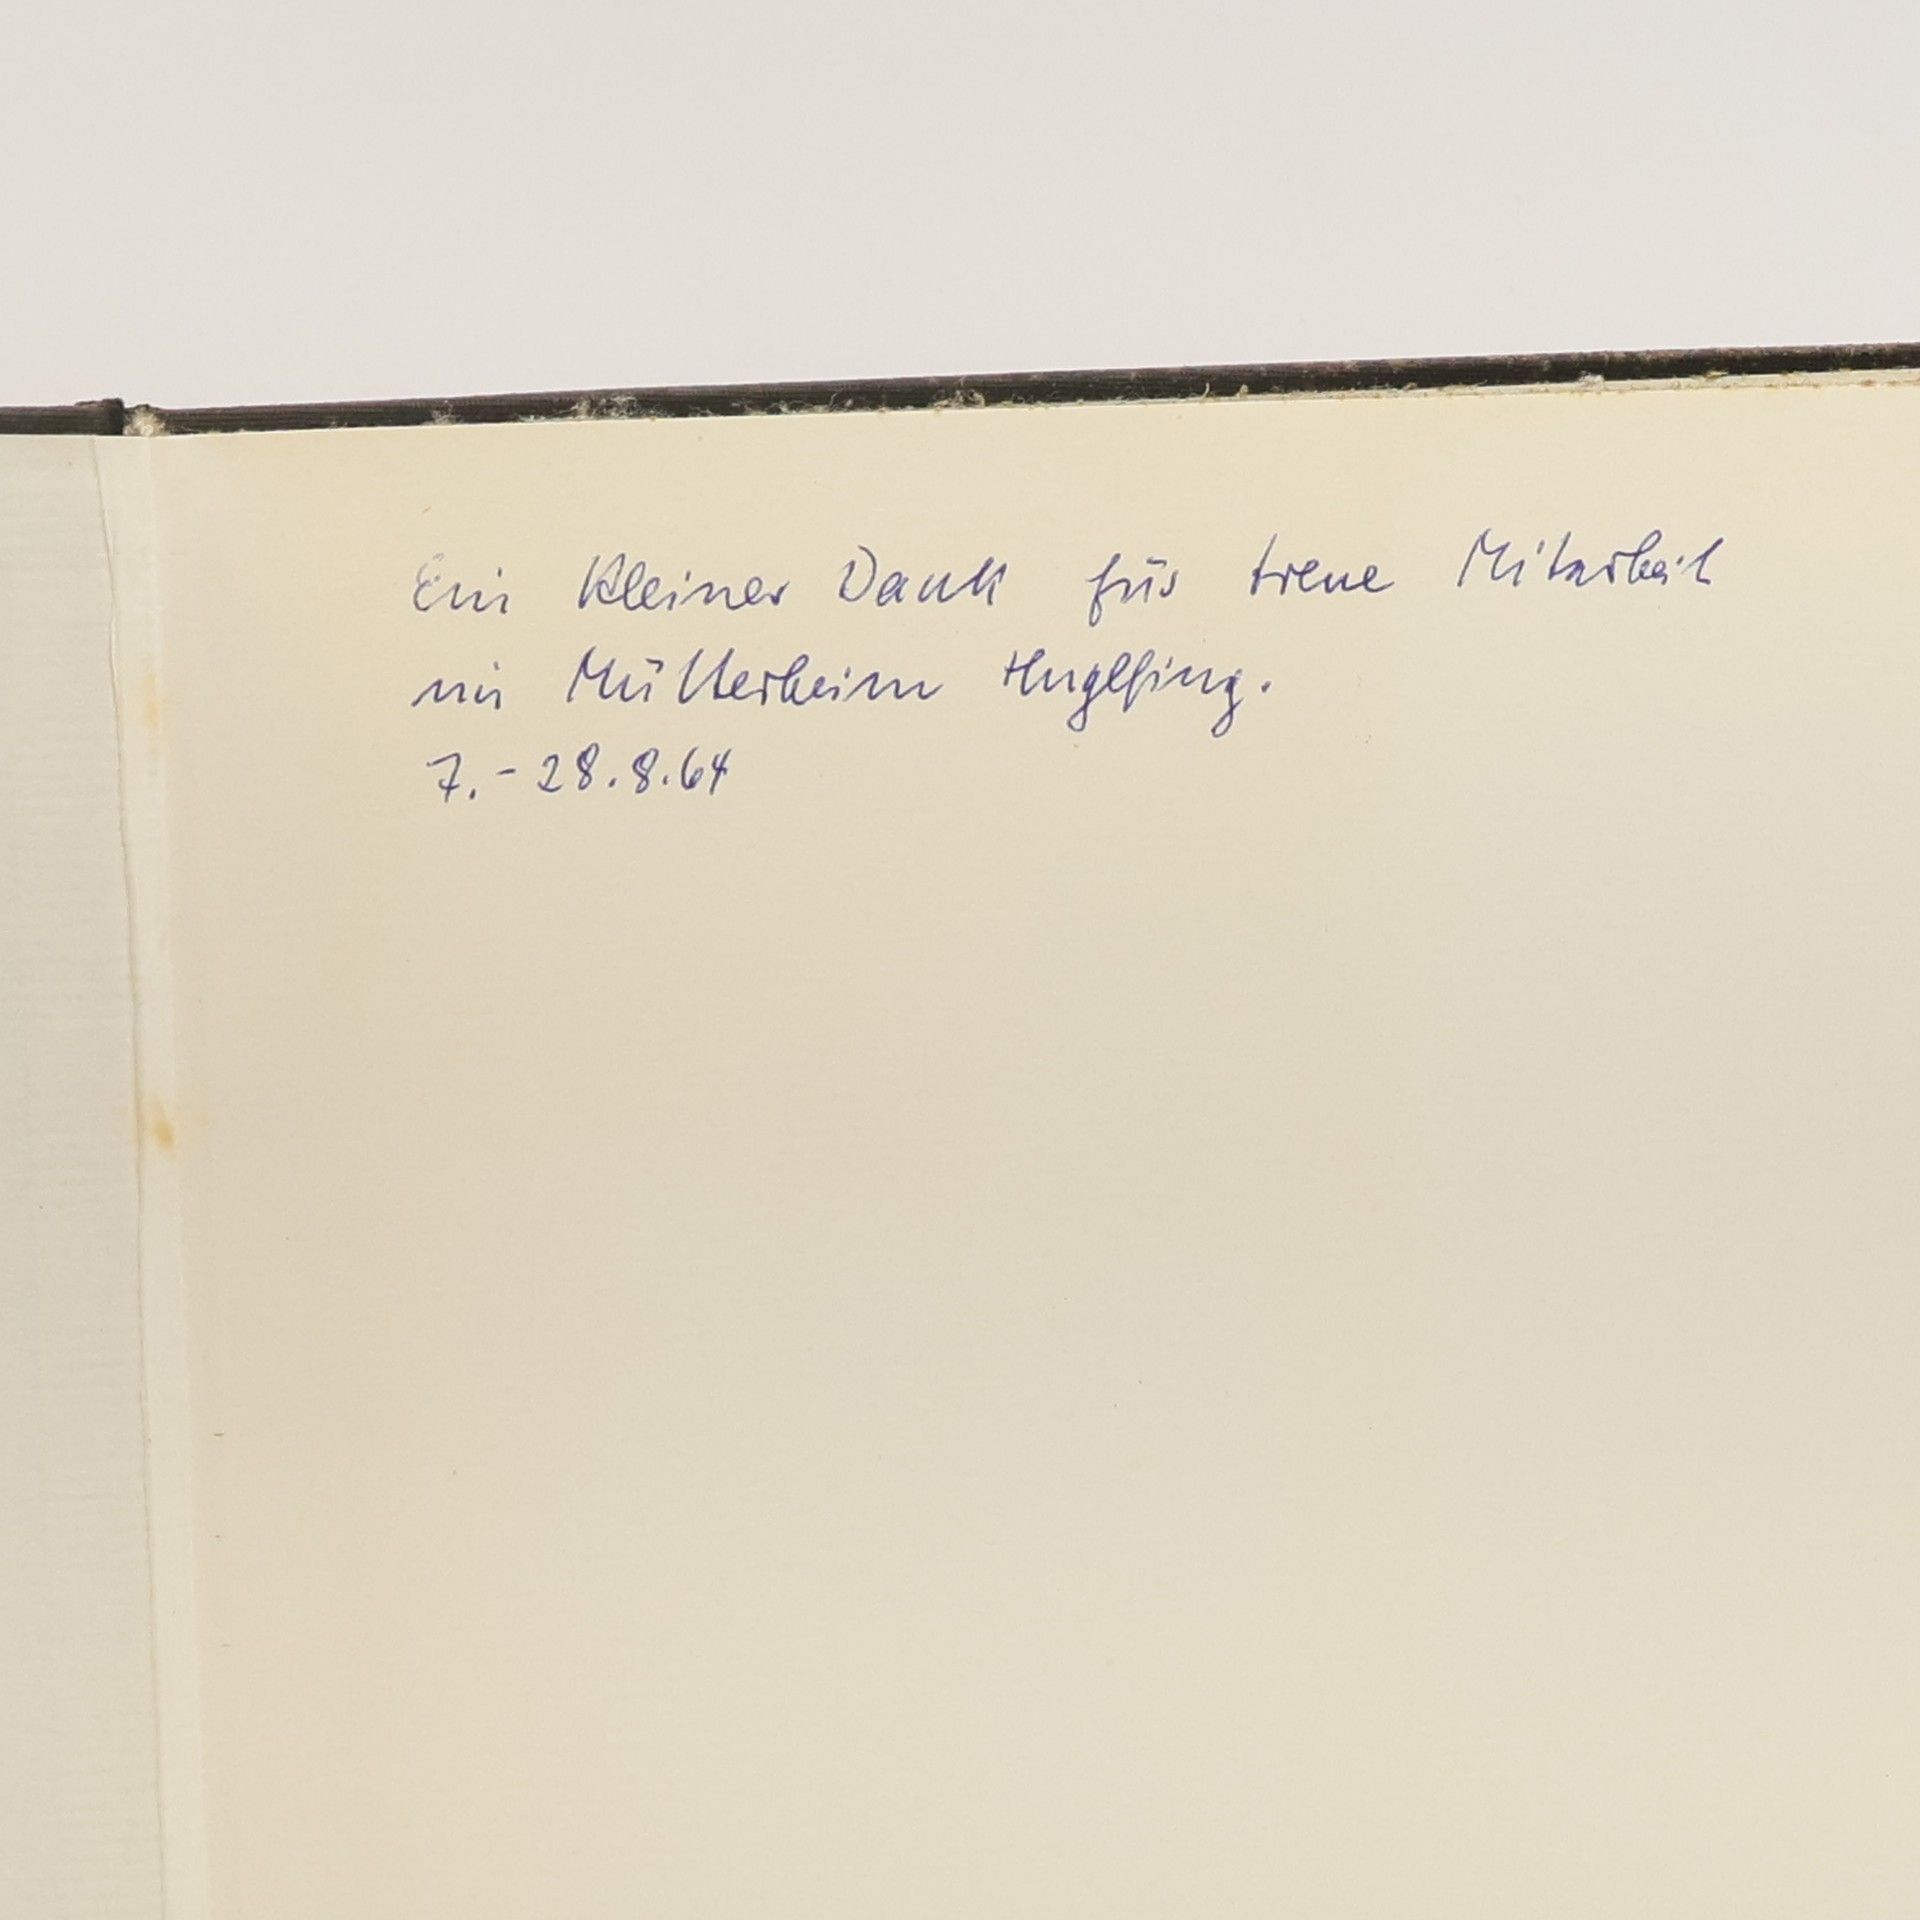 Ein kleiner Dank für treue Mitarbeit
im Mütterheim Huglfing.
7.-28.8.64